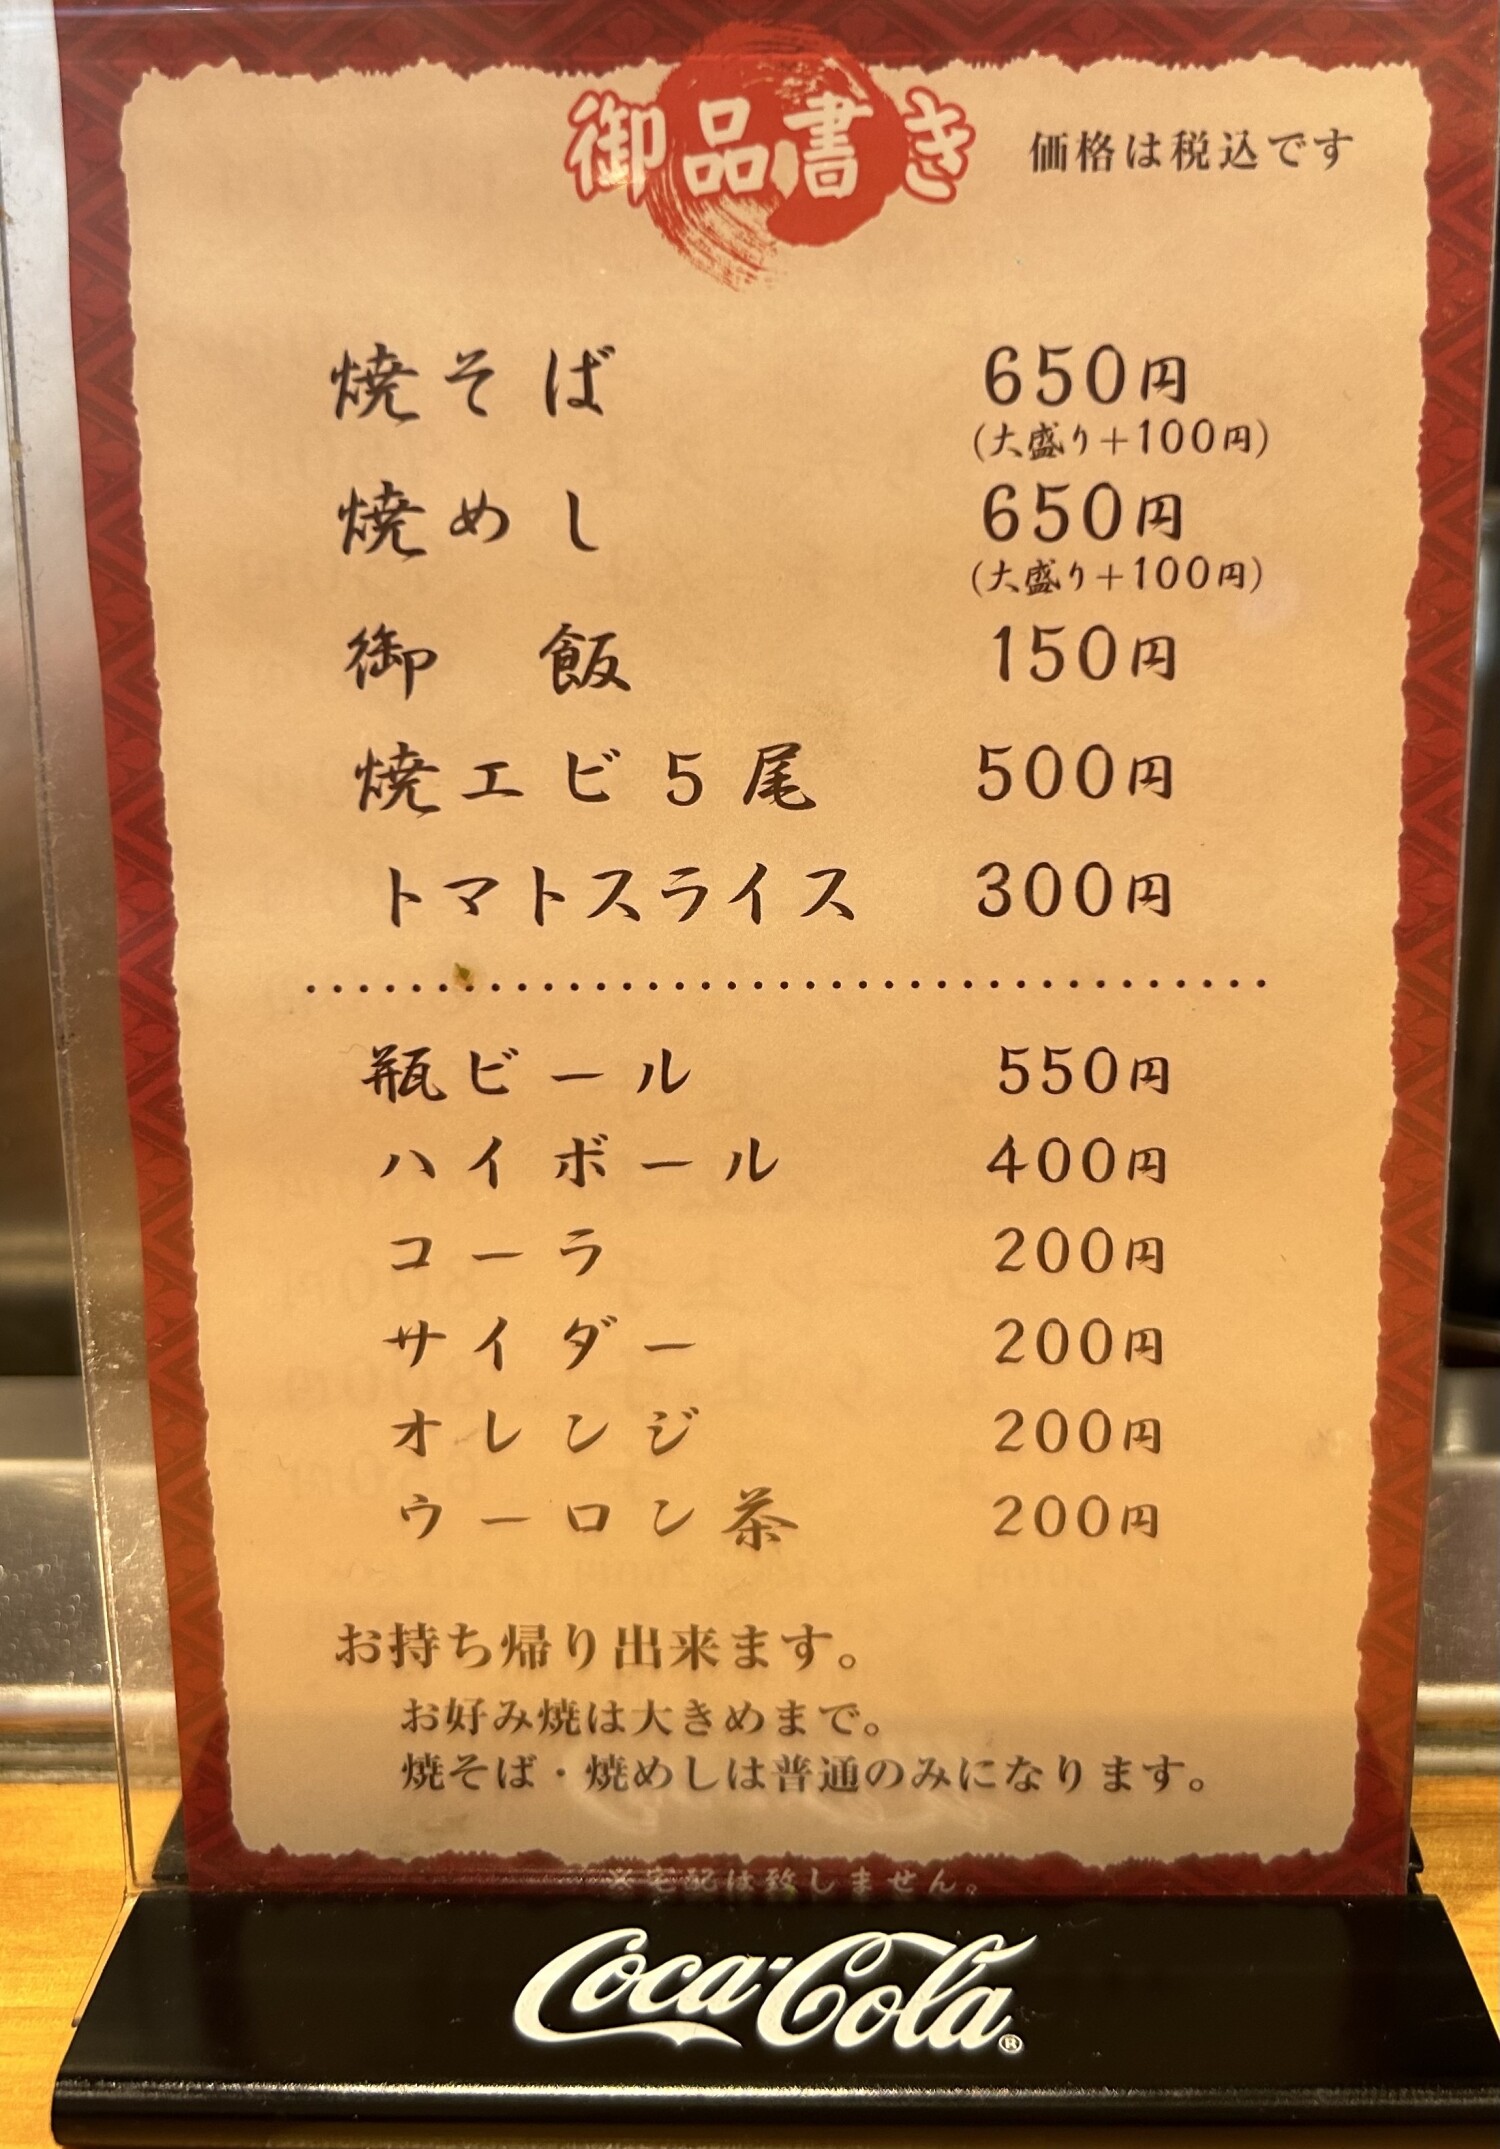 御品書き 価格は税込です
焼そば 650円
(大盛り+100円)
焼めし 650円
(大盛り+100円)
御飯 150円
焼エビ5尾 500円
トマトスライス 300円
瓶ビール 550円
ハイボール 400円
コーラ 200円
サイダー 200円
オレンジ 200円
ウーロン茶 200円
お持ち帰り出来ます。
お好み焼は大きめまで。
焼そば・焼めしは普通のみになります。
※宅配は致しません。
Coca-Cola®